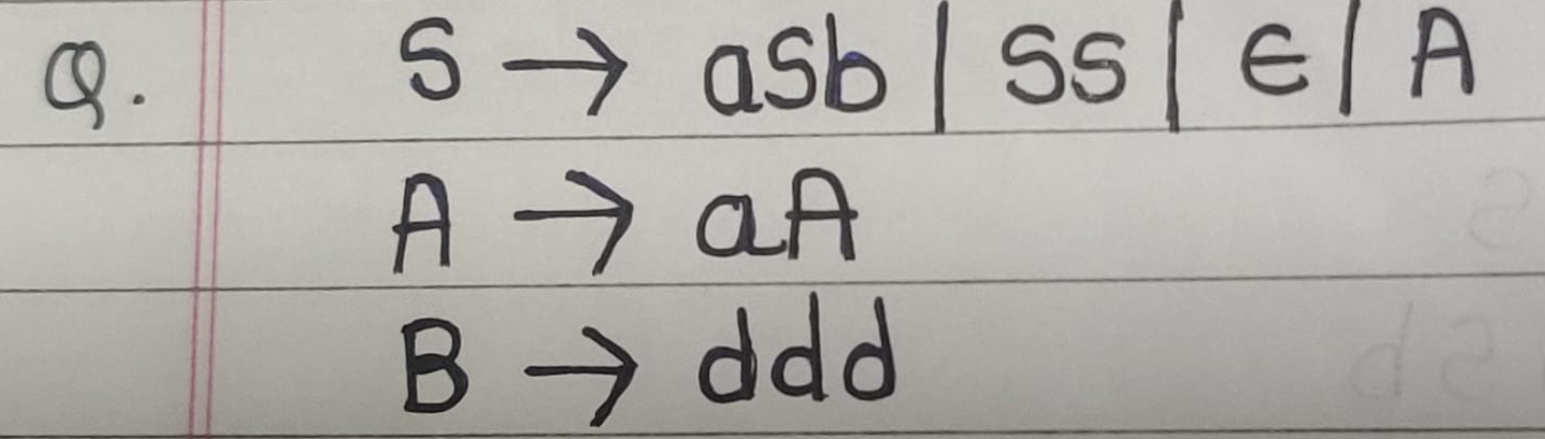 Q. S → asb | SS | ϵ | A
A → aA
B → ddd